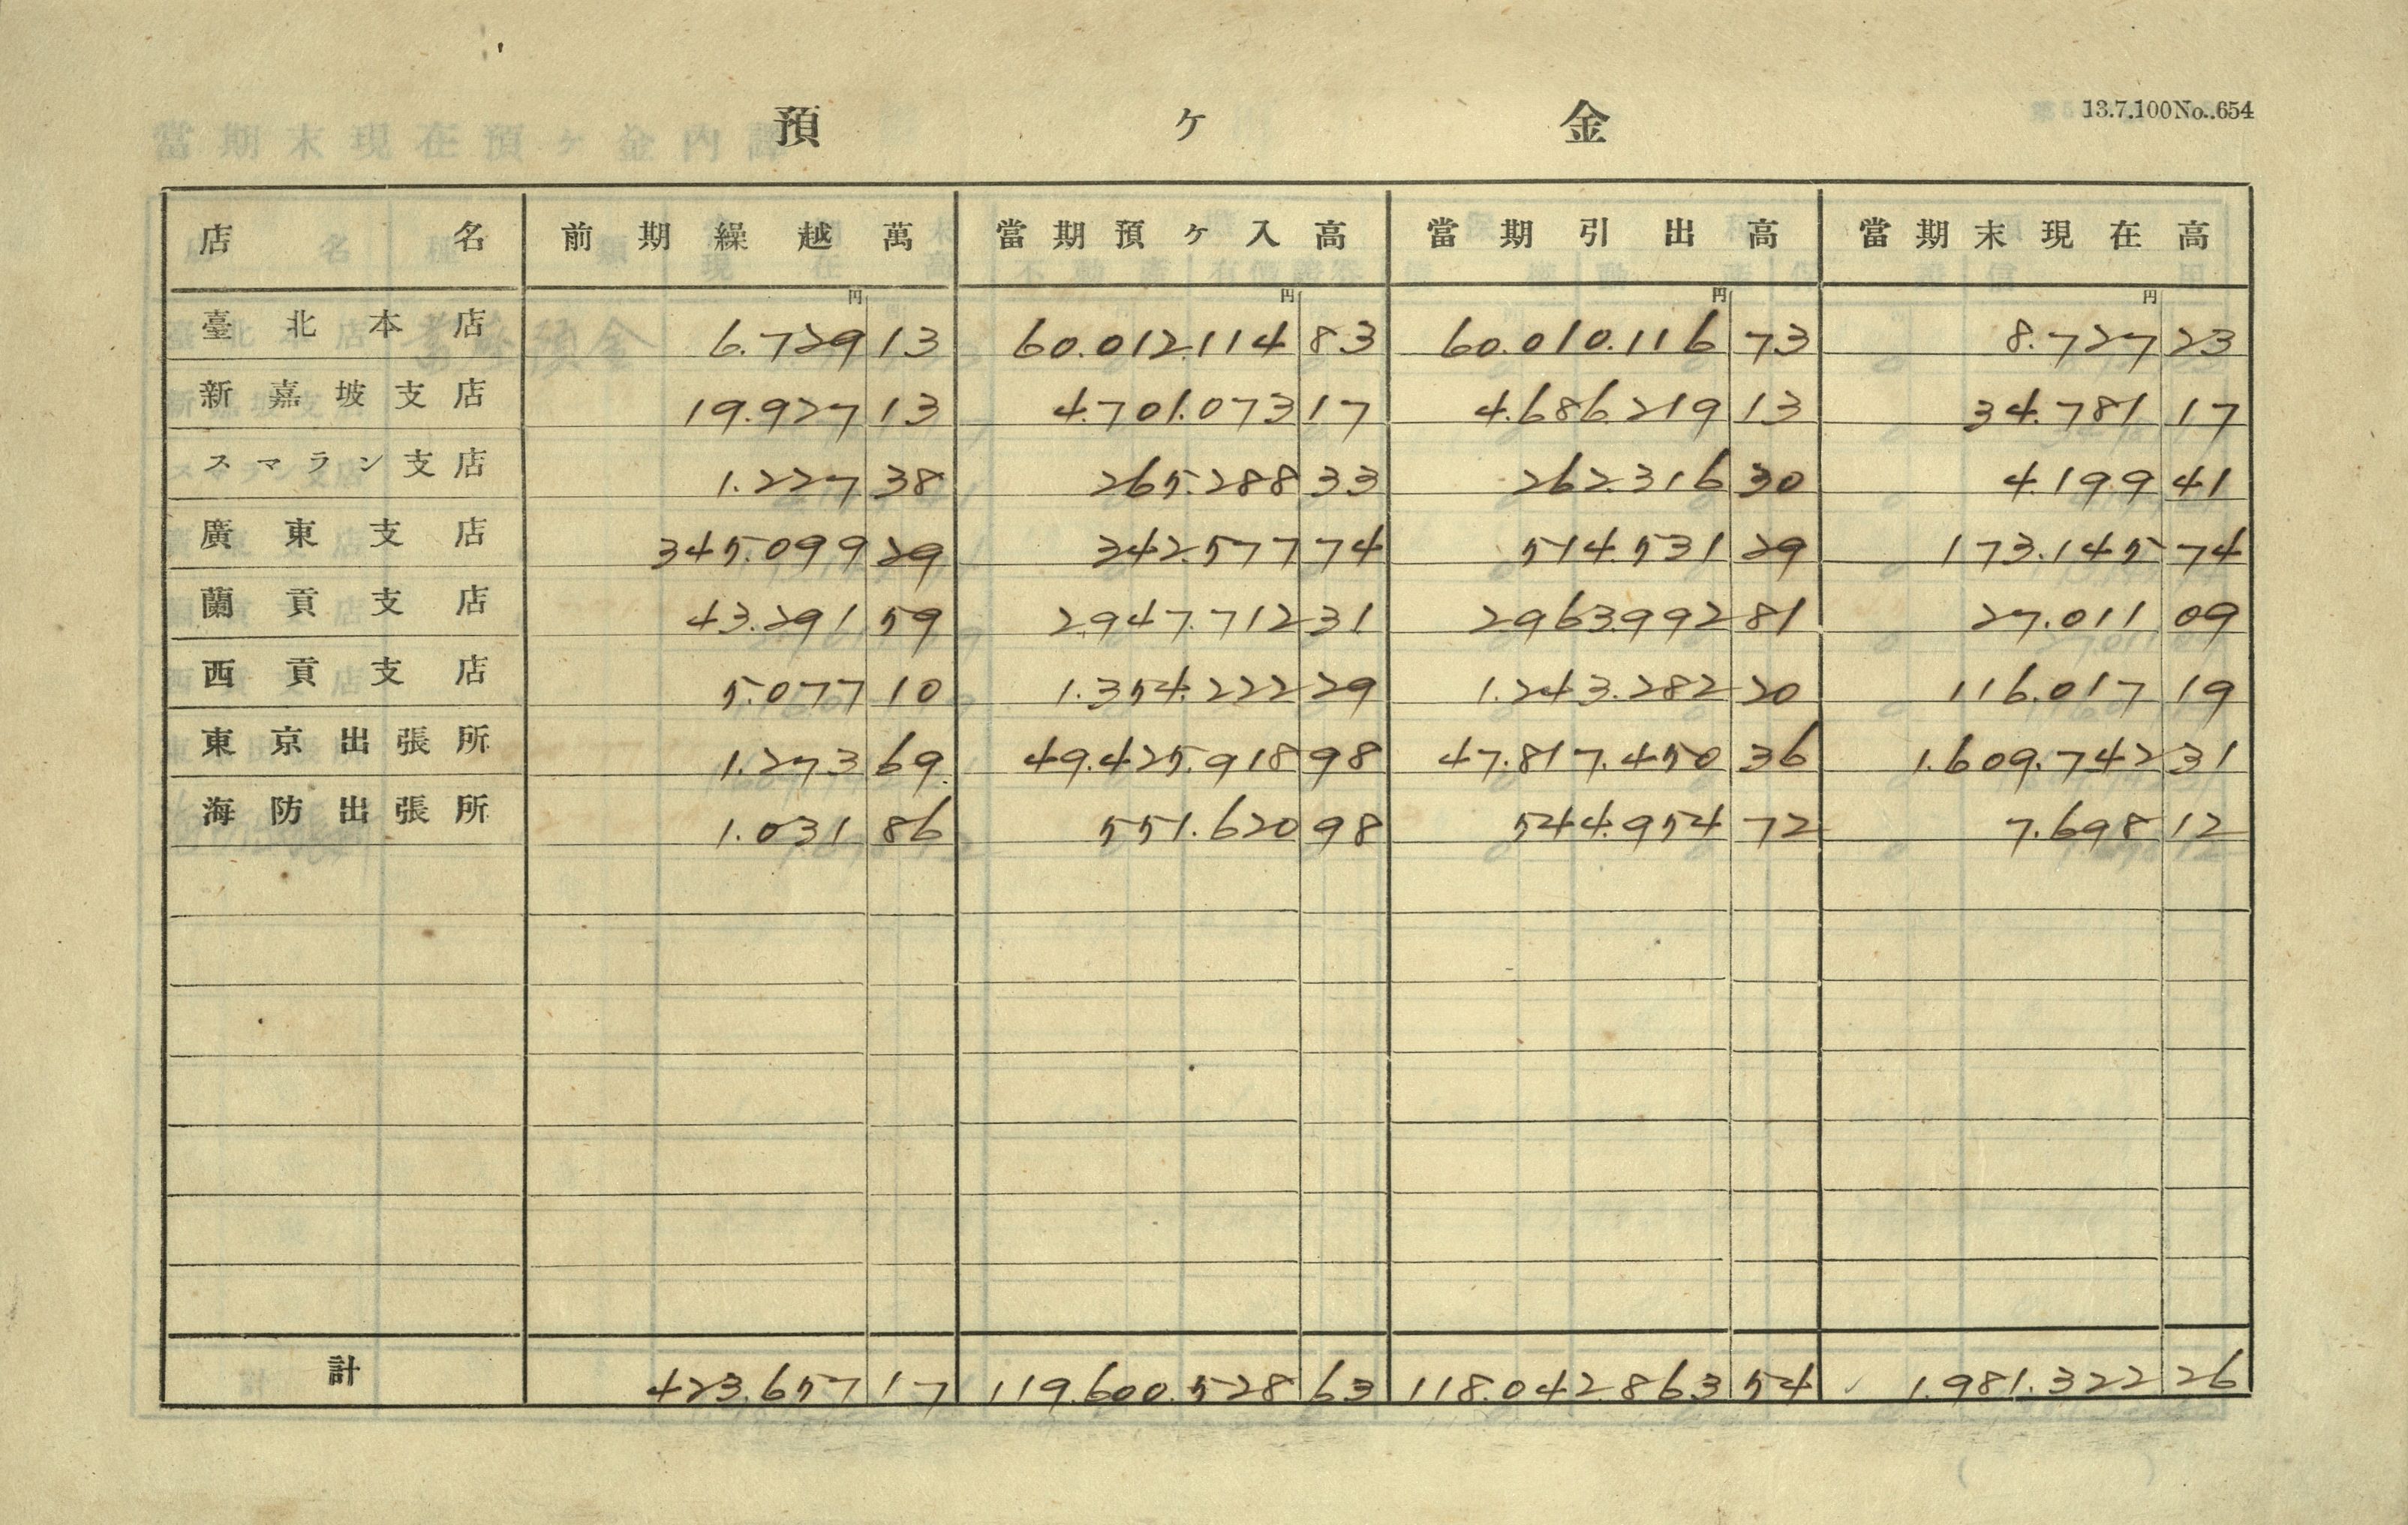 13.7.100 No..654
預ヶ金
店名 前期繰越萬 當期預ヶ入高 當期引出高 當期末現在高
円 円 円 円
臺北本店 6.729 13 60.012.114 83 60.010.116 73 8.727 23
新嘉坡支店 19.927 13 4.701.073 17 4.686.219 13 34.781 17
スマラン支店 1.227 38 265.288 33 262.316 30 4.199 41
廣東支店 345.099 29 342.577 74 514.531 29 173.145 74
蘭貢支店 43.291 59 2.947.712 31 2.963.992 81 27.011 09
西貢支店 5.077 10 1.354.222 29 1.243.282 20 116.017 19
東京出張所 1.273 69 49.425.918 98 47.817.450 36 1.609.742 31
海防出張所 1.031 86 551.620 98 544.954 72 7.698 12
計 423.657 17 119.600.528 63 118.042.863 54 1.981.322 26